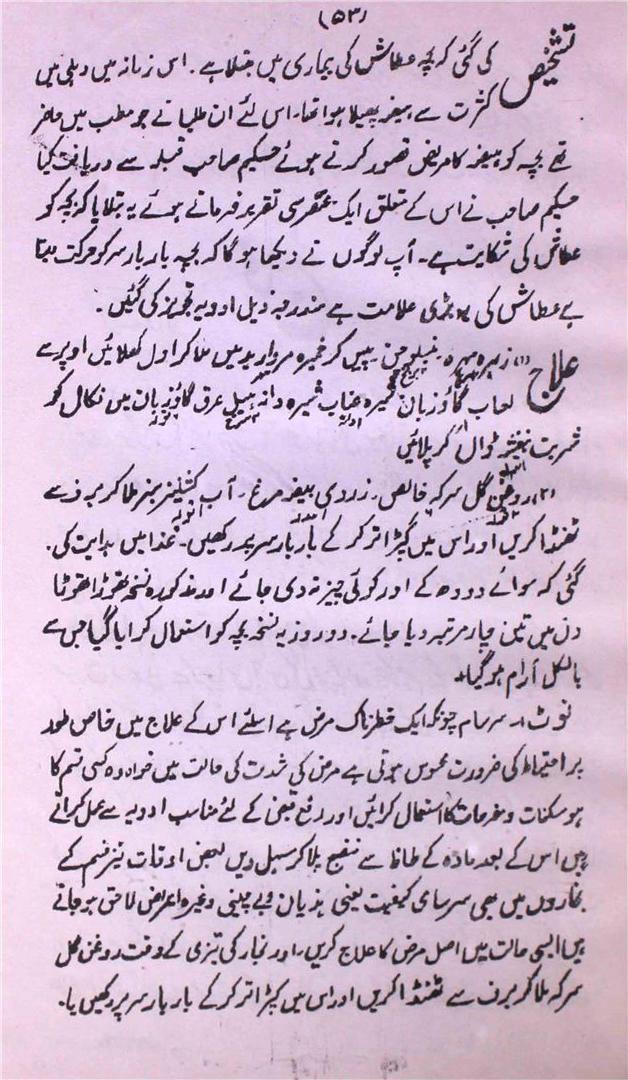 (۵۳)
تشخیص کی گئی کہ بچہ عطاش کی بیماری میں مبتلا ہے۔ اس زمانہ میں دہلی میں
کثرت سے ہیضہ پھیلا ہوا تھا۔ اس لئے ان طلبا نے جو مطب میں حاضر
تھے بچہ کو ہیضہ کا مریض تصور کرتے ہوئے حکیم صاحب قبلہ سے دریافت کیا
حکیم صاحب نے اس کے متعلق ایک مختصر سی تقریر فرماتے ہوئے یہ بتلایا کہ بچہ کو
عطاش کی شکایت ہے۔ آپ لوگوں نے دیکھا ہوگا کہ بچہ بار بار سر کو حرکت دیتا
ہے عطاش کی یہ بڑی علامت ہے مندرجہ ذیل ادویہ تجویز کی گئیں۔
علاج (۱) زہر مہرہ۔ پیس کر خمیرہ مروارید میں ملا کر اول کھلائیں اوپر سے
لعاب گاؤزبان شیرہ عناب شیرہ دانہ ہیل عرق گاؤزبان میں نکال کر
شربت بنفشہ ڈال کر پلائیں
(۲) روغن گل سرکہ خالص۔ زردی بیضہ مرغ۔ آب کشنیز سبز ملا کر برف سے
ٹھنڈا کریں اور اس میں کپڑا تر کر کے بار بار سر پر رکھیں۔ غذا میں ہدایت کی
گئی کہ سوائے دودھ کے اور کوئی چیز نہ دی جائے اور مذکورہ نسخہ تھوڑا تھوڑا
دن میں تین چار مرتبہ دیا جائے۔ دو روز یہ نسخہ بچہ کو استعمال کرایا گیا جس سے
بالکل آرام ہوگیا۔
نوٹ۔ سرسام چونکہ ایک خطرناک مرض ہے اسلئے اس کے علاج میں خاص طور
پر احتیاط کی ضرورت محسوس ہوتی ہے مرض کی شدت کی حالت میں خواہ وہ کسی قسم کا
ہو مسکنات و مخدرات کا استعمال کرائیں اور رفع قبض کے لئے مناسب ادویہ سے عمل کراتے
ہیں اس کے بعد مادہ کے لحاظ سے منضج پلا کر مسہل دیں بعض اوقات تیز قسم کے
بخاروں میں بھی سرسامی کیفیت یعنی ہذیان و بے چینی وغیرہ اعراض لاحق ہو جاتے
ہیں ایسی حالت میں اصل مرض کا علاج کریں۔ اور بخار کی تیزی کے وقت روغن گل
سرکہ ملا کر برف سے ٹھنڈا کریں اور اس میں کپڑا تر کر کے بار بار سر پر رکھیں یا۔